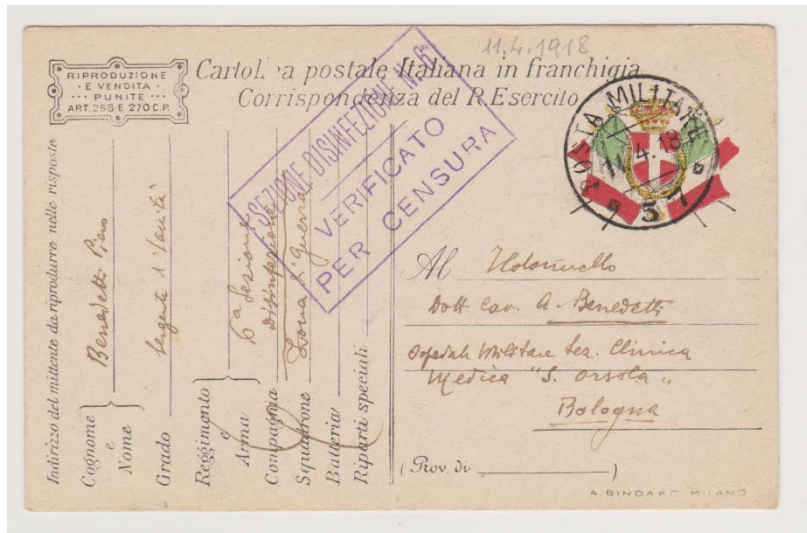 11.4.1918
RIPRODUZIONE
E VENDITA
PUNITE
ART. 268 E 270 C.P.
Cartolina postale Italiana in franchigia
Corrispondenza del R. Esercito
SEZIONE DISINFEZIONE N. 6
VERIFICATO
PER CENSURA
POSTA MILITARE
11.4.18
57
Indirizzo del mittente da riprodurre nelle risposte
Cognome
e
Nome
Benedetti Piero
Grado
Sergente di Sanità
Reggimento
e
Arma
6ª Sezione
Compagnia
Disinfezione
Squadrone
Zona di guerra
Batteria
Riparti speciali
Al
Dott Cav. A. Benedetti
Ospedale Militare Sez. Clinica
Medica "S. Orsola"
Bologna
(Prov. di )
A. BINDA & C. MILANO